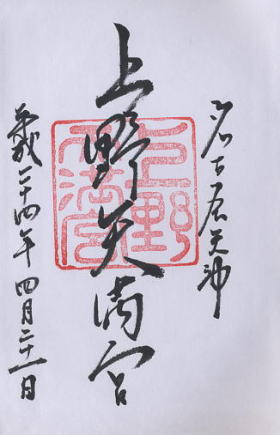 名古屋天神
上野天満宮
上野天満宮
平成二十四年四月二十一日